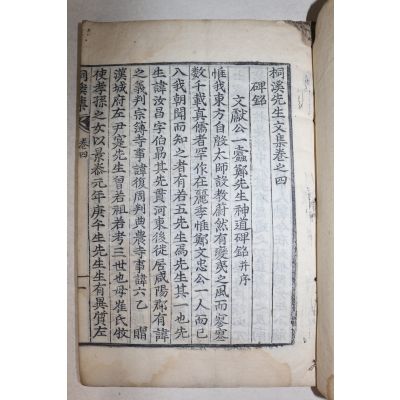 桐溪先生文集卷之四
碑銘
文獻公一蠹鄭先生神道碑銘 幷序
惟我東方自殷太師設敎蔚然有變夷之風而寥寥
數千載眞儒者罕作在麗季惟鄭文忠公一人而已
入我朝聞而知之者有若五先生焉先生其一也先
生諱汝昌字伯勗其先貫河東後徙居咸陽郡有諱
之義判宗簿寺事諱復周判典農寺事諱六乙 贈
漢城府左尹寔先生曾若祖若考三世也母崔氏牧
使孝孫之女以景泰元年庚午生先生生有異質左
桐溪集
卷四
一